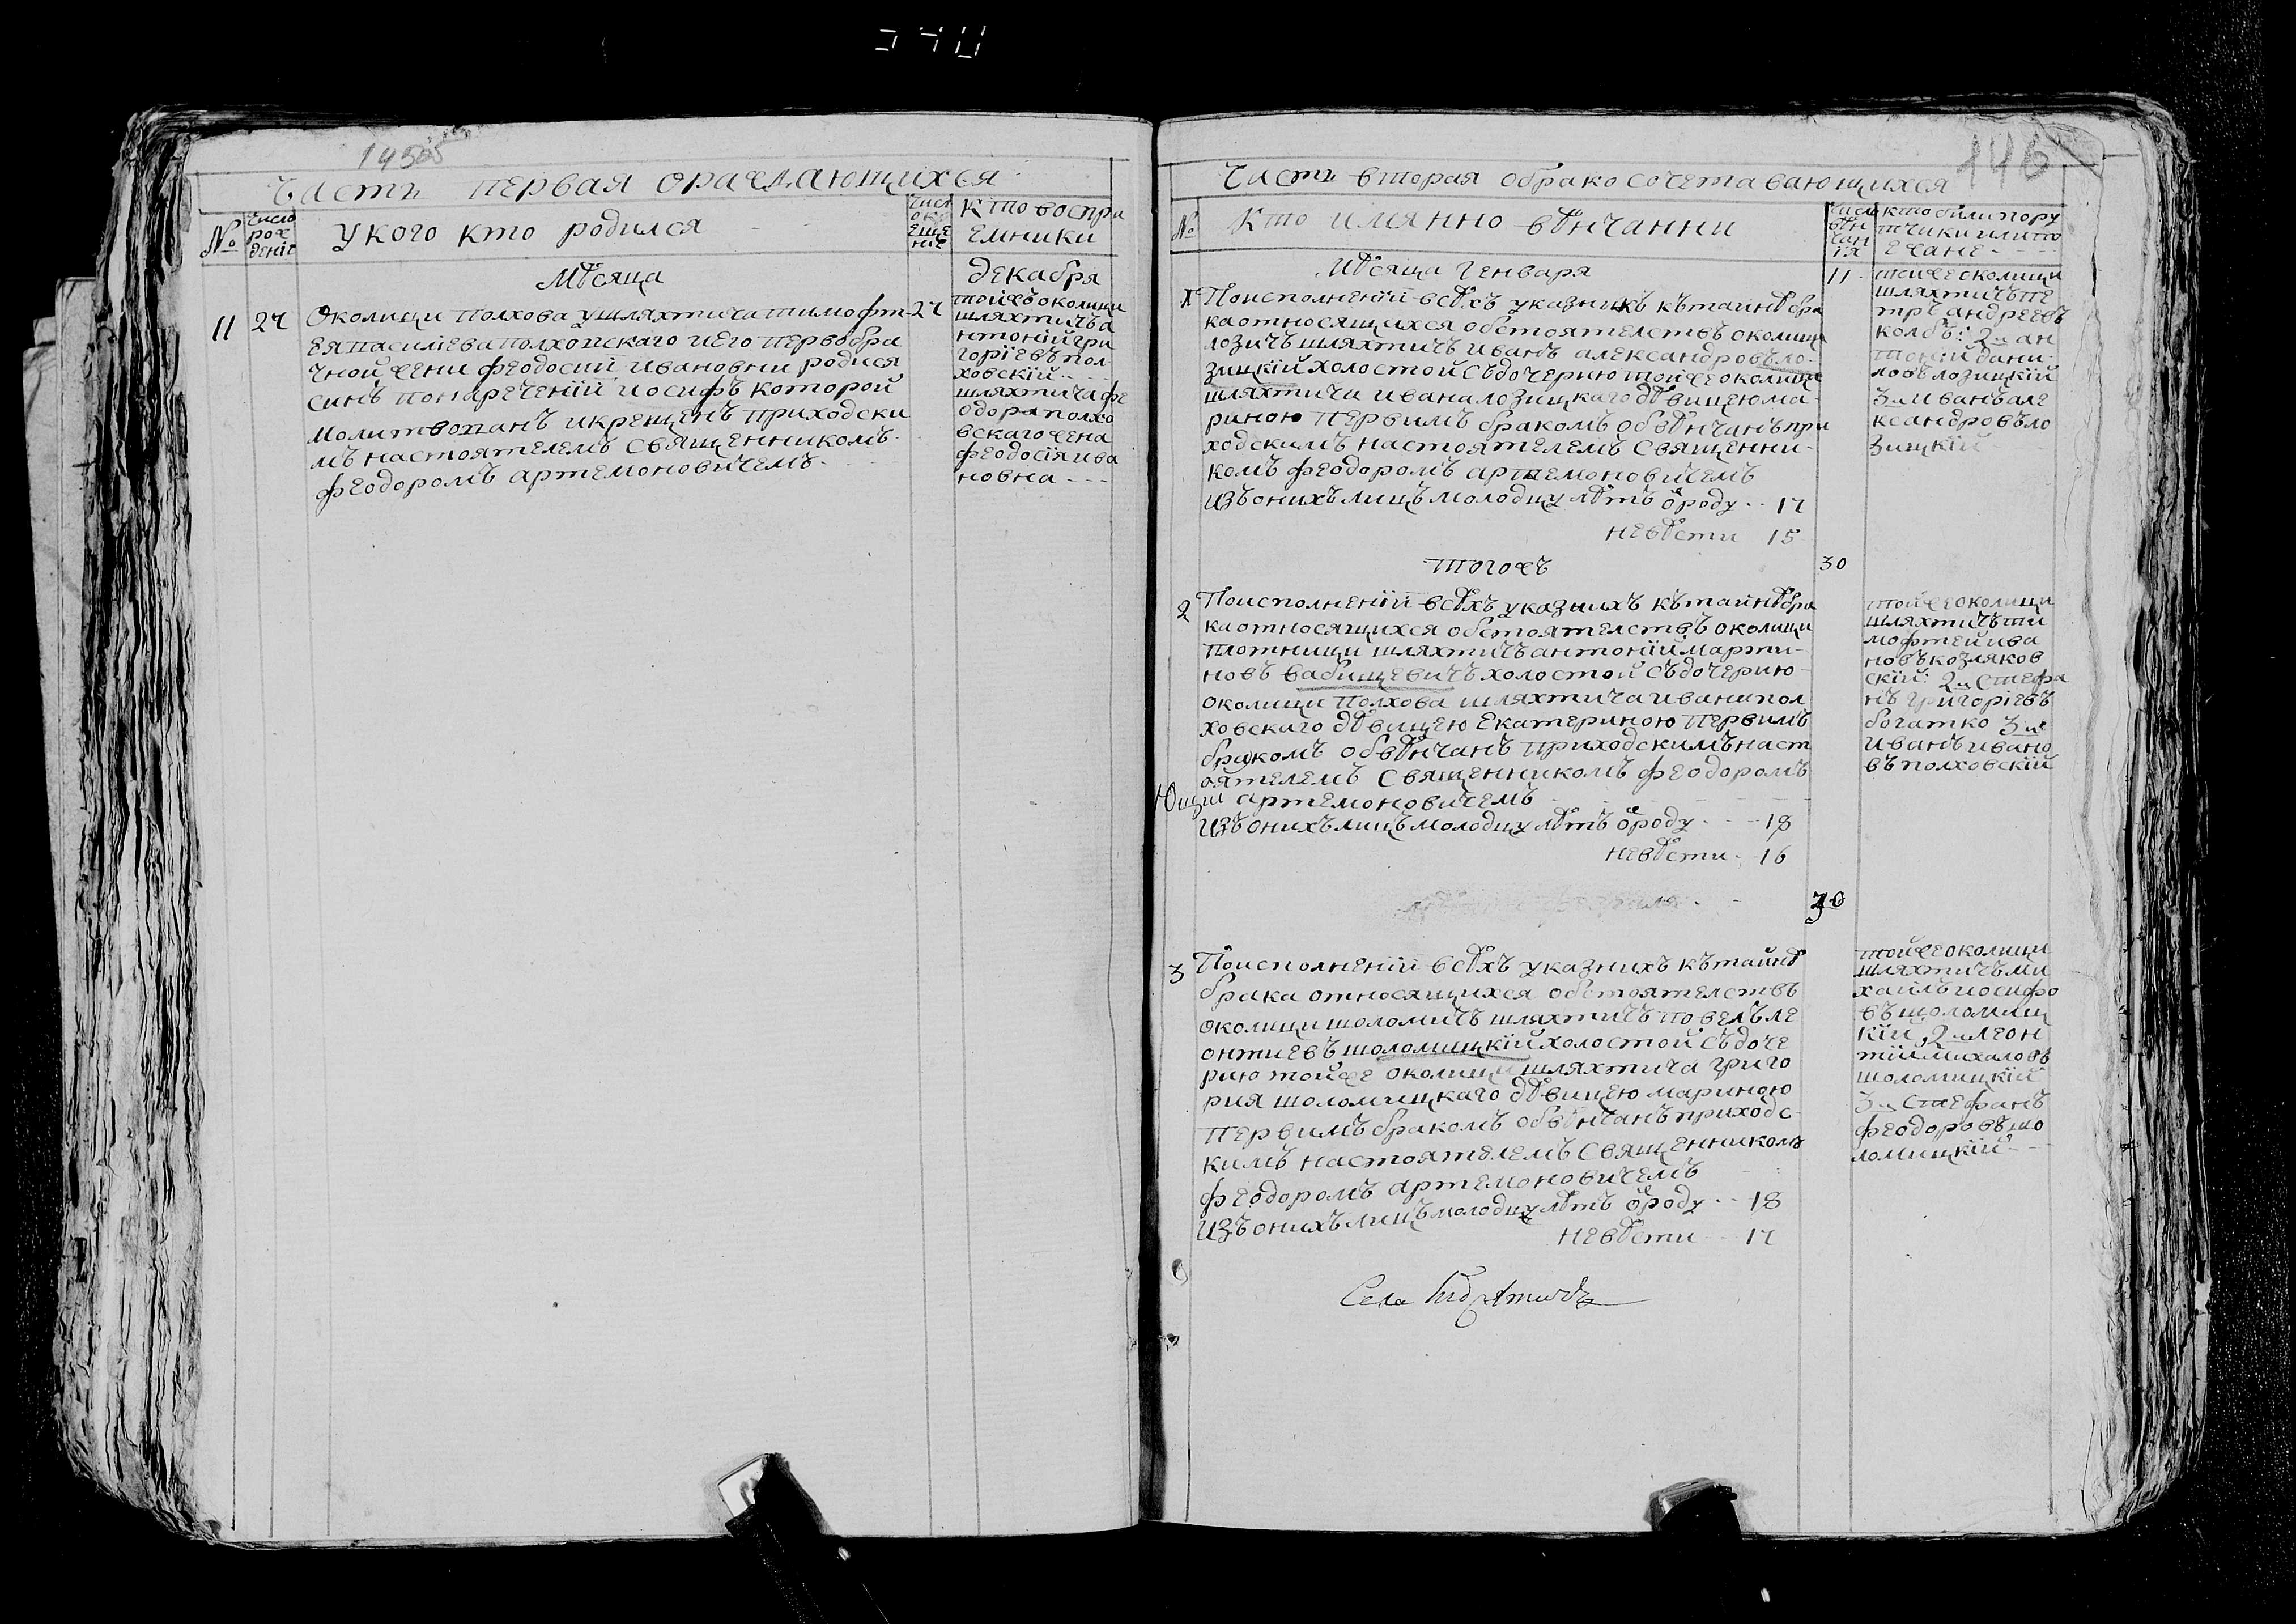 145
Часть первая ораждающихся
№
число рождение
укого кто родился
число окрещение
кто воспри
емники
Мѣсяца
декабря
11
27
Околици полхова ушляхтича тимофѣ
ея василиева полховскаго иего первобра
чной жени феодосии ивановни родися
синъ понаречений иосифъ которой
молитвованъ икрещенъ приходски
мъ настоятелемъ священникомъ
феодоромъ артемоновичемъ
27
тойжъ околици
шляхтичъ а
нтоний гри
горіевъ пол
ховскій
шляхтича фе
одора полхо
вскаго жена
феодосія ива
новна
146
Часть вторая обрако сочетавающихся
№
кто имянно вѣнчанни
число вѣнчания
кто били пору
тчики илипо
ежане
Мѣсяца генваря
11
1
Поисполненіи всѣхъ указнихъ кътайнѣ бра
ка относящихся обстоятелствъ околици
лозичъ шляхтичъ иванъ александровъ ло
зицкій холостой съдочерию тойже околици
шляхтича ивана лозицкаго дѣвицею ма
риною первимъ бракомъ обвѣнчанъ при
ходскимъ настоятелемъ священни
комъ феодоромъ артемоновичемъ
изъ онихъ лицъ молодцу лѣтъ ѿроду 17
невѣсти 15
тойже околици
шляхтичъ пе
тръ андреевъ
колбъ: 2й ан
тоний дани
ловъ лозицкій
3й иванъ але
ксандровъ ло
зицкій
тогожъ
30
2
Поисполненіи всѣхъ указнихъ кътайнѣ бра
ка относящихся обстоятелствъ околици
плотници шляхтичъ антоній марти
новъ вабищевичъ холостой съдочерию
околици полхова шляхтича ивана пол
ховскаго дѣвицею екатериною первимъ
бракомъ обвѣнчанъ приходскимъ наст
оятелемъ священникомъ феодоромъ
артемоновичемъ
изъ онихъ лицъ молодцу лѣтъ ѿроду 18
невѣсти 16
тойже околици
шляхтичъ ти
мофтей ива
новъ козляков
скій: 2й стефа
нъ григоріевъ
богатко 3й
иванъ ивано
въ полховскій
30
3
Поисполненіи всѣхъ указнихъ кътайнѣ
брака относящихся обстоятелствъ
околици шоломичъ шляхтичъ павелъ ле
онтиевъ шоломицкій холостой съдоче
рию тойже околици шляхтича григо
рия шоломицкаго дѣвицею мариною
первимъ бракомъ обвѣнчанъ приходс
кимъ настоятелемъ священникомъ
феодоромъ артемоновичемъ
изъ онихъ лицъ молодцу лѣтъ ѿроду 18
невѣсти 17
тойже околици
шляхтичъ ми
хаилъ иосифо
въ шоломиц
кій 2й леон
тій михаловъ
шоломицкій
3й стефанъ
феодоровъ шо
ломицкій
Села